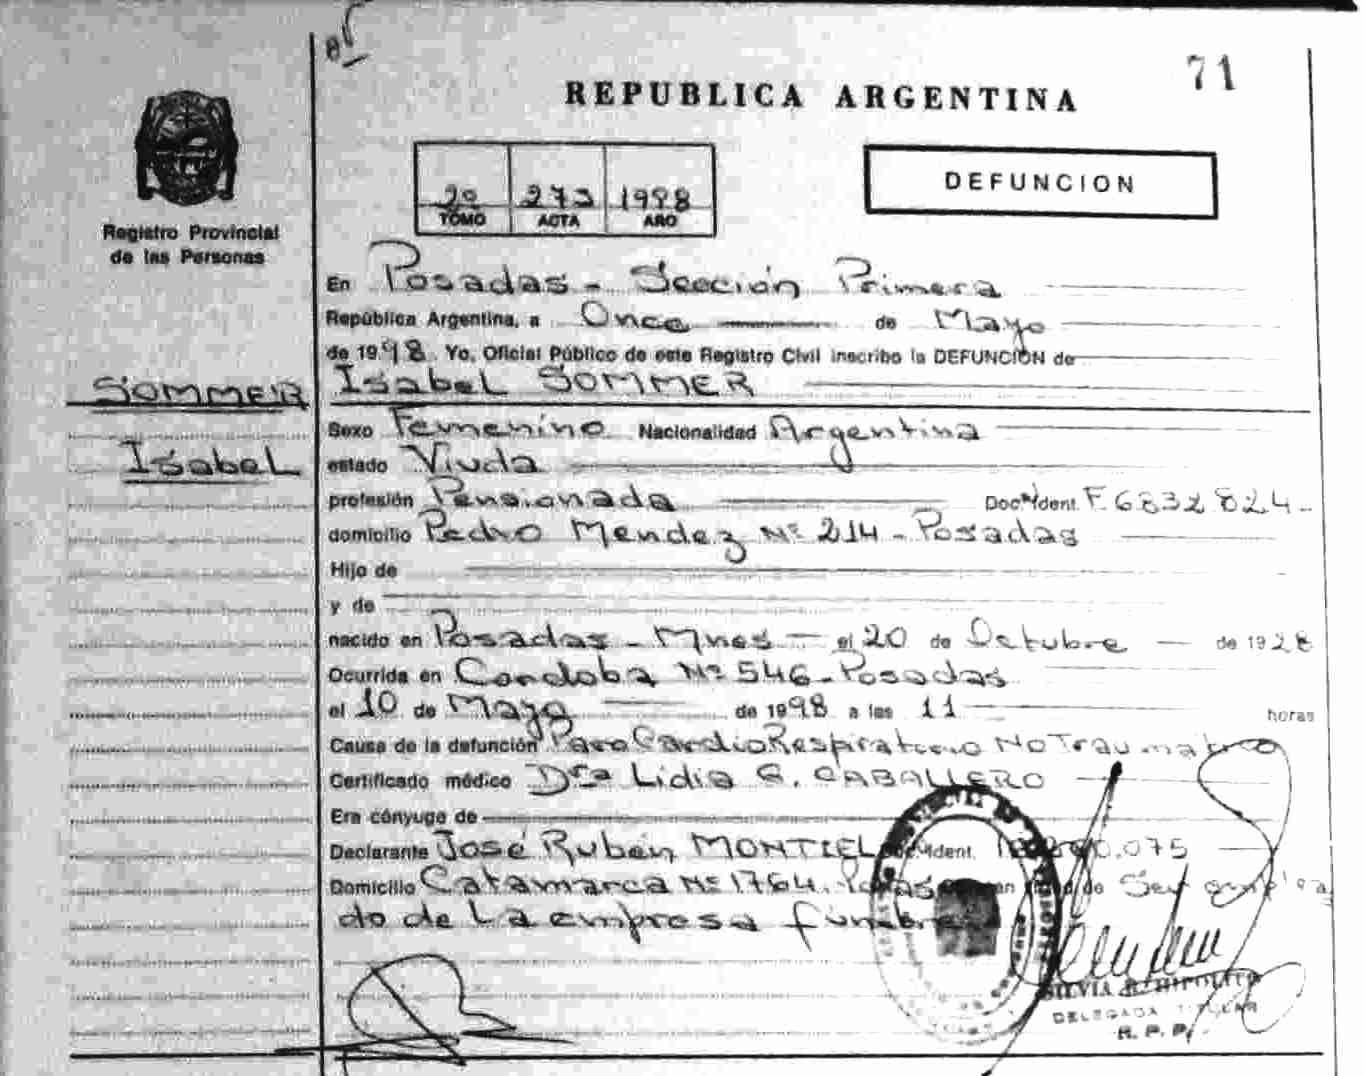 71
REPUBLICA ARGENTINA
DEFUNCION
273 1998
TOMO ACTA AÑO
Registro Provincial
de las Personas
En Posadas - Sección Primera
República Argentina, a Once de Mayo
de 1998 Yo, Oficial Público de este Registro Civil inscribo la DEFUNCIÓN de
SOMMER
Isabel SOMMER
Sexo Femenino Nacionalidad Argentina
Isabel
estado Viuda
profesión Pensionada Doc. Ident. F. 6832824-
domicilio Pedro Mendez Nº 214 - Posadas
Hijo de
y de
nacido en Posadas - Mnes - el 20 de Octubre de 1928
Ocurrida en Cordoba Nº 546 - Posadas
el 10 de Mayo de 1998 a las 11 horas
Causa de la defunción Paro CardioRespiratorio No Traumatico
Certificado médico Dra Lidia G. CABALLERO
Era cónyuge de
Declarante José Rubén MONTIEL Ident.
Domicilio Catamarca Nº 1764. de Ser emplea
do de La empresa fúnebre
SILVIA R. HIPOLITO
DELEGADA TITULAR
R. P. P.